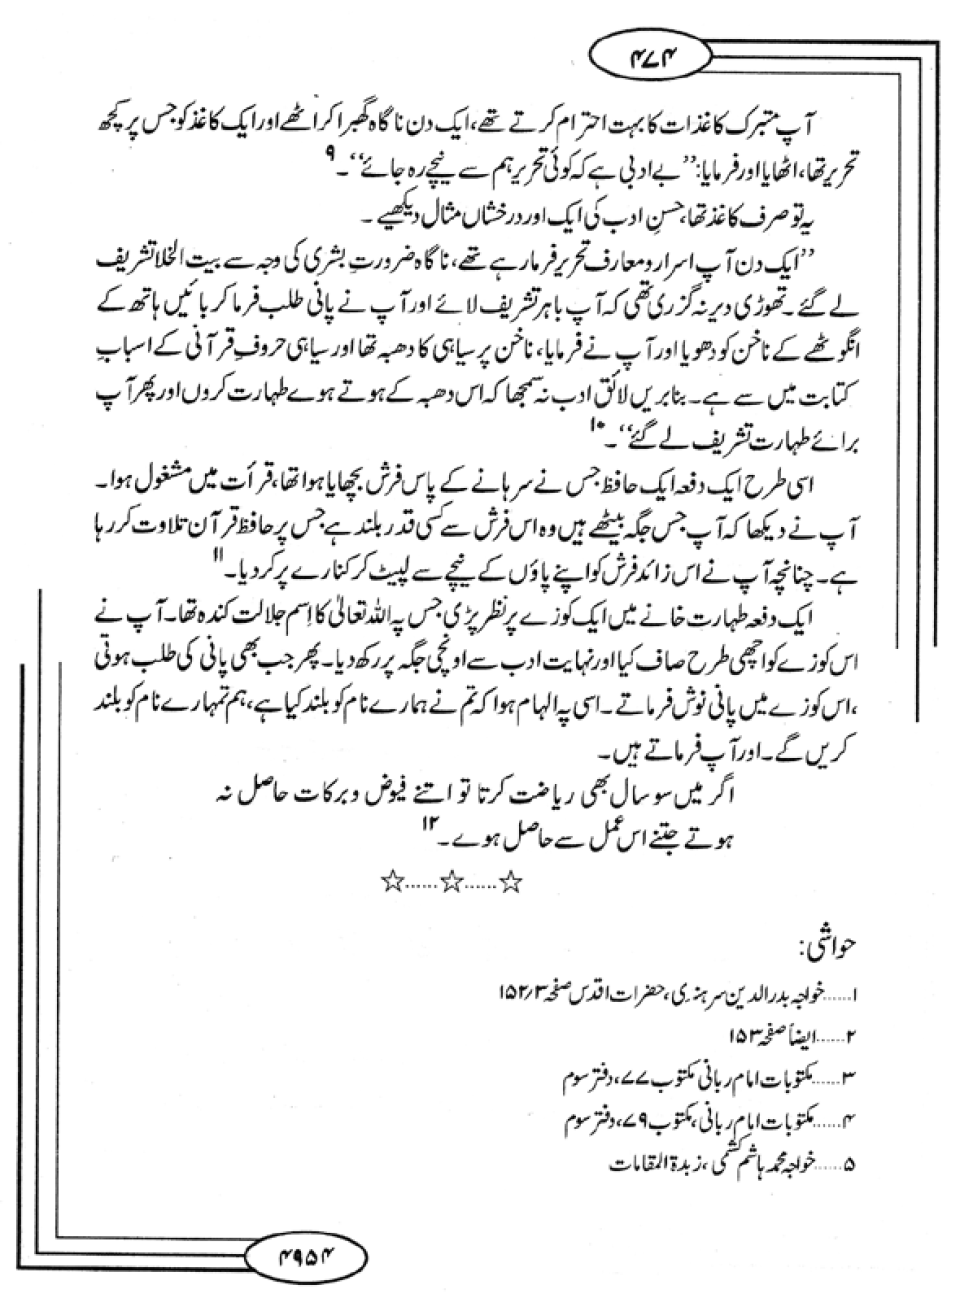 ۴۷۴
آپ متبرک کاغذات کا بہت احترام کرتے تھے، ایک دن ناگاہ گھبرا کر اٹھے اور ایک کاغذ کو جس پر کچھ
تحریر تھا، اٹھایا اور فرمایا: ’’بے ادبی ہے کہ کوئی تحریر ہم سے نیچے رہ جائے‘‘۔۹
یہ تو صرف کاغذ تھا، حسنِ ادب کی ایک اور درخشاں مثال دیکھیے۔
’’ایک دن آپ اسرار و معارف تحریر فرما رہے تھے، ناگاہ ضرورتِ بشری کی وجہ سے بیت الخلا تشریف
لے گئے۔ تھوڑی دیر نہ گزری تھی کہ آپ باہر تشریف لائے اور آپ نے پانی طلب فرما کر بائیں ہاتھ کے
انگوٹھے کے ناخن کو دھویا اور آپ نے فرمایا، ناخن پر سیاہی کا دھبہ تھا اور سیاہی حروفِ قرآنی کے اسبابِ
کتابت میں سے ہے۔ بنابریں لائق ادب نہ سمجھا کہ اس دھبہ کے ہوتے ہوے طہارت کروں اور پھر آپ
برائے طہارت تشریف لے گئے‘‘۔۱۰
اسی طرح ایک دفعہ ایک حافظ جس نے سرہانے کے پاس فرش بچھایا ہوا تھا، قرأت میں مشغول ہوا۔
آپ نے دیکھا کہ آپ جس جگہ بیٹھے ہیں وہ اس فرش سے کسی قدر بلند ہے جس پر حافظ قرآن تلاوت کر رہا
ہے۔ چنانچہ آپ نے اس زائد فرش کو اپنے پاؤں کے نیچے سے لپیٹ کر کنارے پر کر دیا۔۱۱
ایک دفعہ طہارت خانے میں ایک کوزے پر نظر پڑی جس پہ اللہ تعالیٰ کا اِسم جلالت کندہ تھا۔ آپ نے
اس کوزے کو اچھی طرح صاف کیا اور نہایت ادب سے اونچی جگہ پر رکھ دیا۔ پھر جب بھی پانی کی طلب ہوتی
،اس کوزے میں پانی نوش فرماتے۔ اسی پہ الہام ہوا کہ تم نے ہمارے نام کو بلند کیا ہے، ہم تمہارے نام کو بلند
کریں گے۔ اور آپ فرماتے ہیں۔
اگر میں سو سال بھی ریاضت کرتا تو اتنے فیوض و برکات حاصل نہ
ہوتے جتنے اس عمل سے حاصل ہوے۔۱۲
☆......☆......☆
حواشی:
۱......خواجہ بدر الدین سرہندی، حضرات اقدس صفحہ ۱۵۲٫۳
۲......ایضاً صفحہ ۱۵۳
۳......مکتوبات امام ربانی مکتوب ۷۷، دفتر سوم
۴......مکتوبات امام ربانی، مکتوب ۷۹، دفتر سوم
۵......خواجہ محمد ہاشم کشمی، زبدۃ المقامات
۴۹۵۴